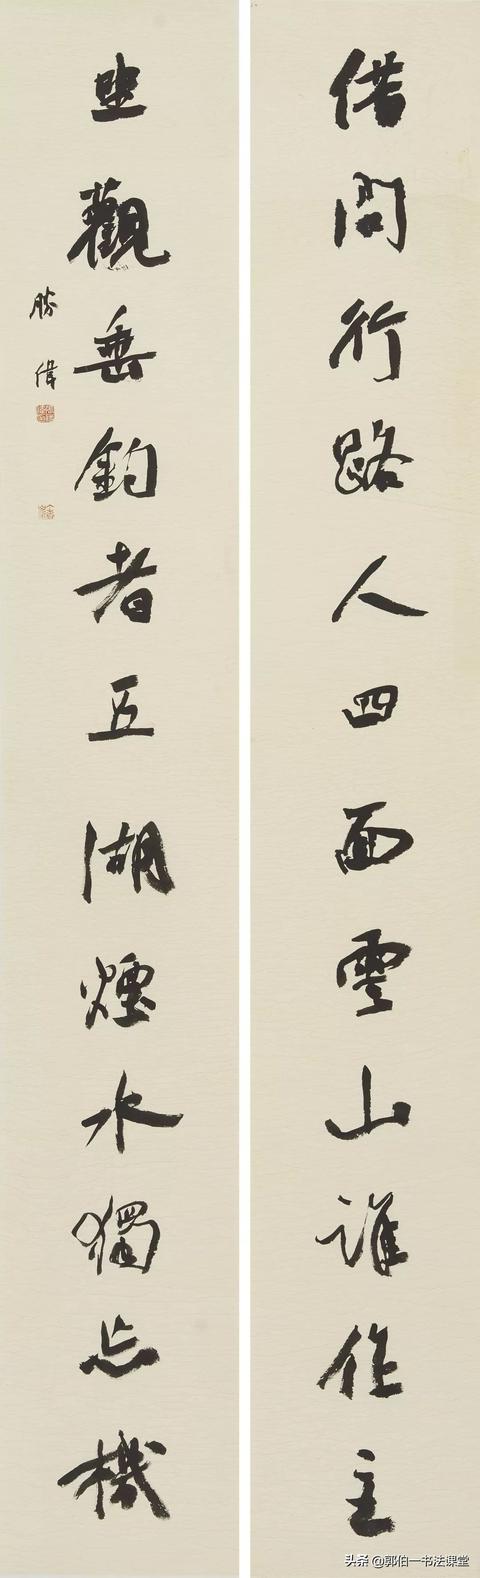 借問行路人四面雲山誰作主
坐觀垂釣者五湖煙水獨忘機
勝偉
头条 @郭伯一书法课堂